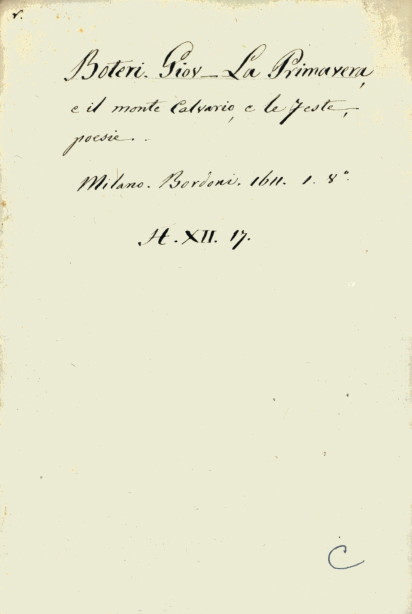 v.
Boteri. Giov_ La Primavera,
e il monte Calvario, e le Feste,
poesie..
Milano. Bordoni. 1611. 1. 8°.
H. XII. 17.
C